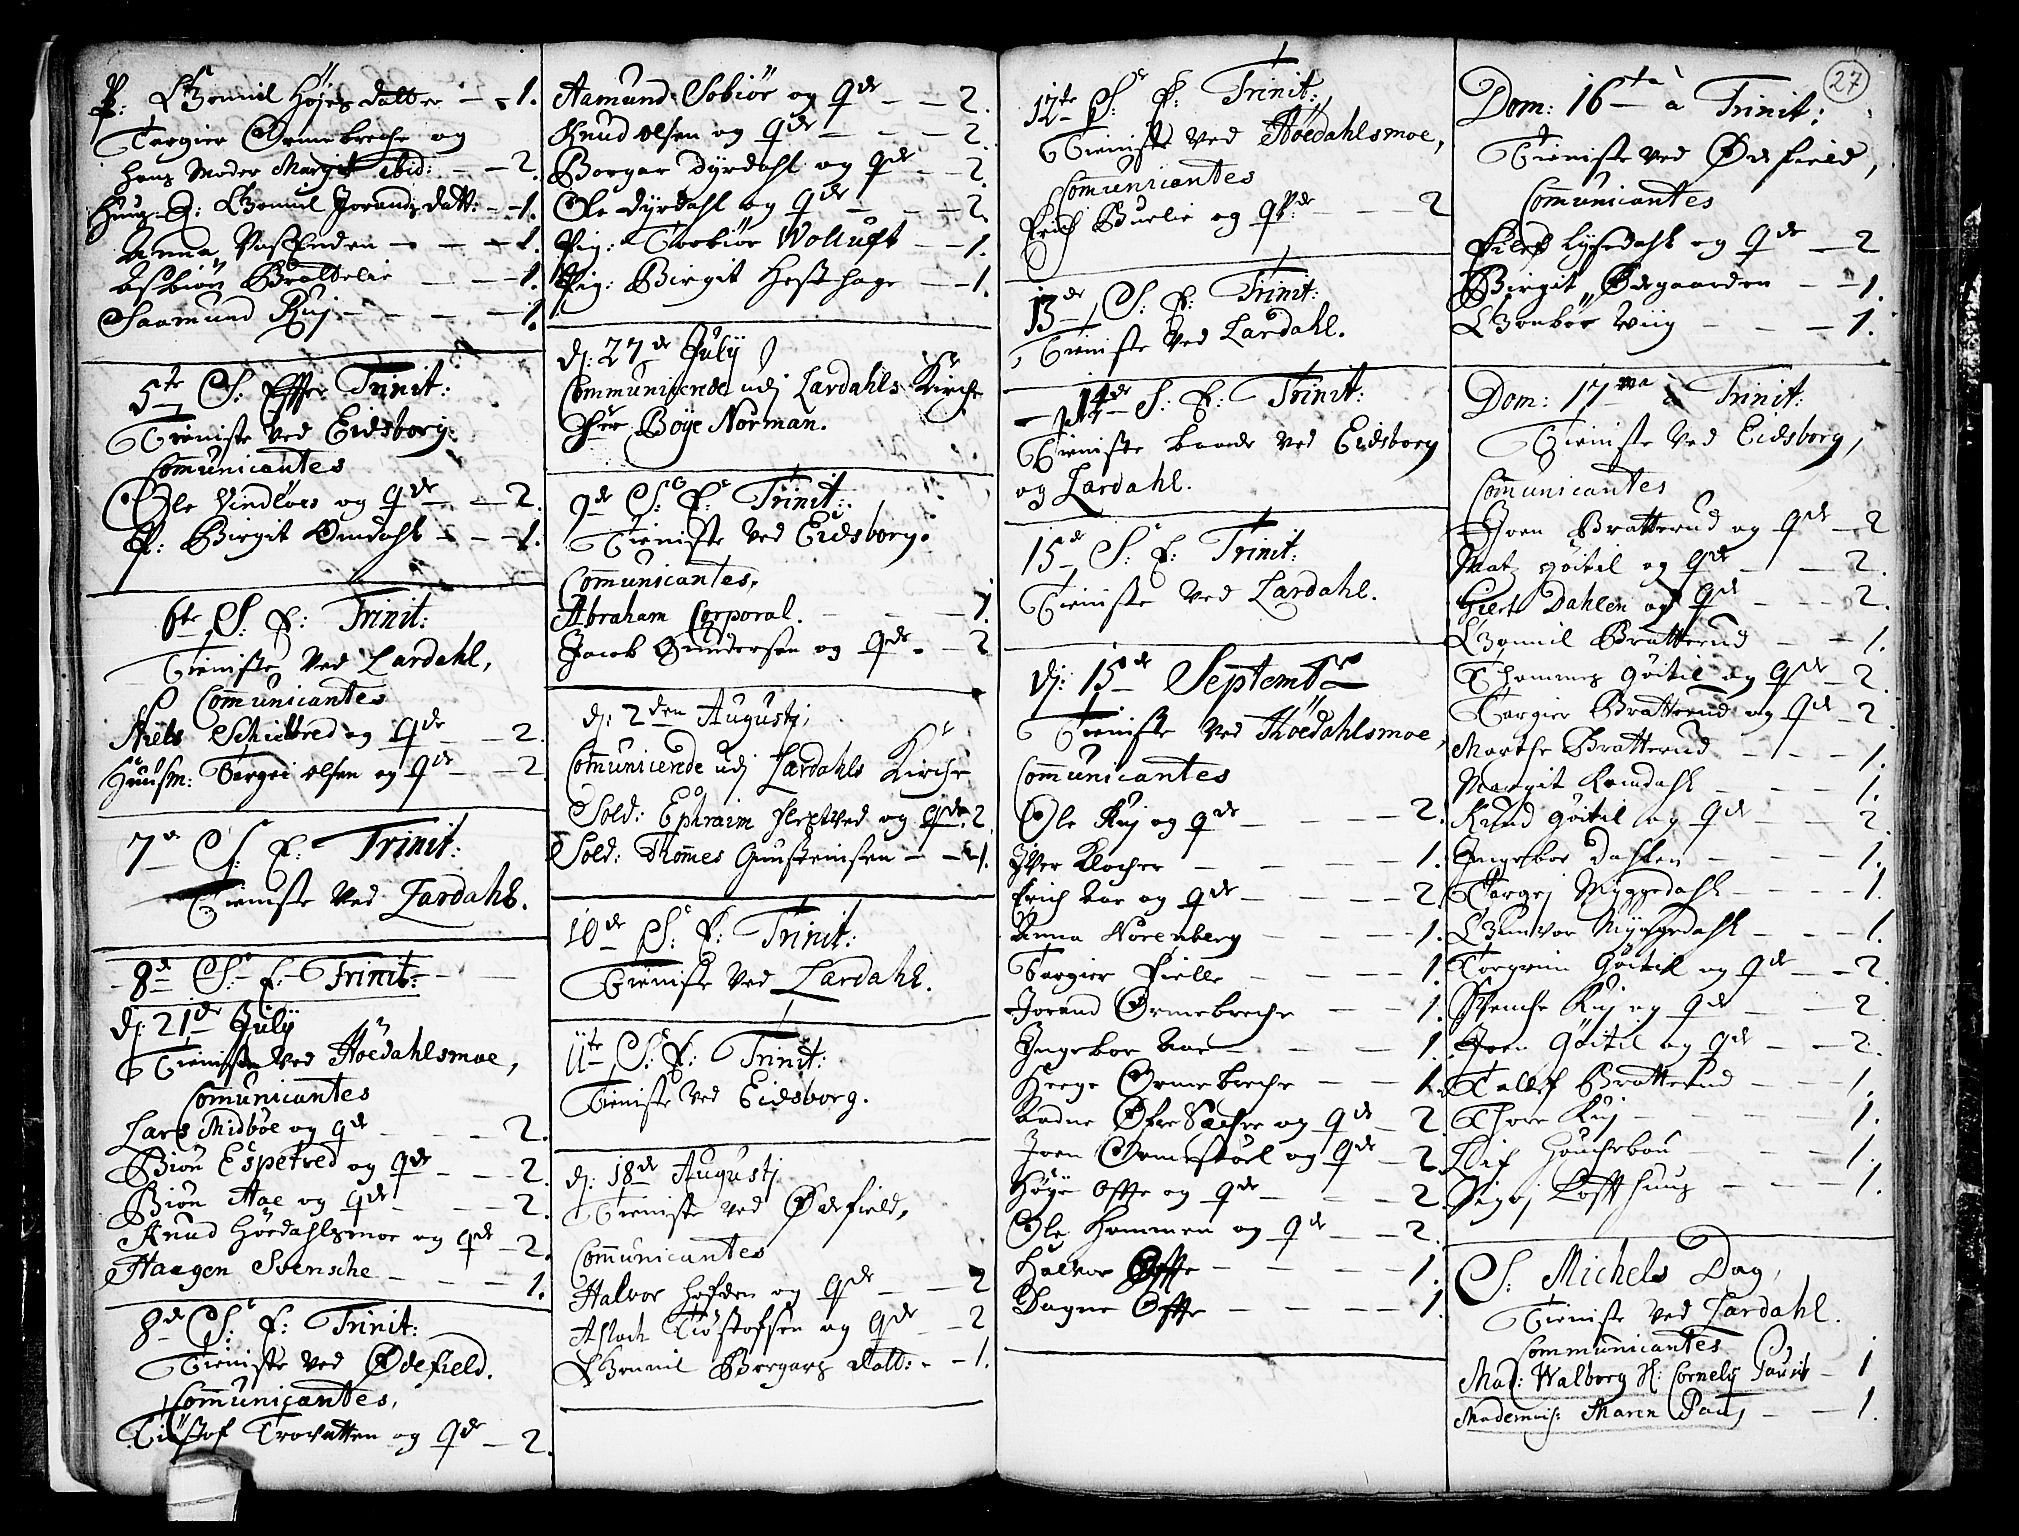 P: Gunnil Höjesdatter - - 1.
Targier Ormebrecke og
hans Moder Margit ibid: - - 2.
Huus-Q: Gunnil Jorandsdatt: - 1.
Anna - - - 1.
Asbiön Brattelie - - - 1.
Saamund Ruj - - - - 1.
5te S: Effter Trinit:
Tieniste ved Eidsborg.
Communicantes
Ole Vindlöes og Qde - - 2.
P: Birgit Omdahl - - 1.
6te S: E: Trinit:
Tieniste ved Lardahl,
Communicantes
Niels Schielbred og Qde - - 2.
Huusm: Targei Olsen og Qde - - 2.
7de S: E: Trinit:
Tieniste ved Lardahl.
8de S: E: Trinit:
dj: 21de Julij
Tieniste ved Höedahlsmoe,
Communicantes
Lars Midböe og Qde - - 2.
Biön Espetved og Qde - - 2.
Biön Aae og Qde - - 2.
Knud Höedahlsmoe og Qde - 2.
Haagen Svensche - - - 1.
8de S: E: Trinit:
Tieniste ved Ødefield.
Communicantes,
Tiöstof Trovatten og Qde - 2.
Aamund Sobiör og Qde - - 2.
Knud Olsen og Qde - - - 2.
Borgar Dyrdahl og Qde - - 2.
Ole Dyrdahl og Qde - - - 2.
Pig: Torbiör Wolluft - - 1.
Pig: Birgit Heschhage - - 1.
dj: 27de Julij
Communicerede udj Lardahls Kirche
Herr Böye Norman.
9de S: E: Trinit:
Tieniste ved Eidsborg.
Communicantes,
Abraham Corporal. - - - 1.
Jacob Gundersen og Qde - 2
dj: 2den Augustj,
Communicerede udj Lardahls Kirche
Sold: Ephraim og Qde. 2.
Sold: Thommes Gunsteinsen - - 1.
10de S: E: Trinit:
Tieniste ved Lardahl.
11te S: E: Trinit:
Tieniste ved Eidsborg.
dj: 18de Augustj
Tieniste ved Ødefield,
Communicantes
Halvor Hofden og Qde - - 2
Aslach Tiöstofsen og Qde - - 2
Gunnil Borgars datt: - - 1.
12te S: E: Trinit:
Tieniste ved Höedahlsmoe,
Communicantes
Erich Buelie og Qde: - - - 2
13de S: E: Trinit:
Tieniste ved Lardahl.
14de S: E: Trinit:
Tieniste baade ved Eidsborg
og Lardahl.
15de S: E: Trinit:
Tieniste ved Lardahl.
dj: 15de Septembr
Tieniste ved Höedahlsmoe,
Communicantes
Ole Ruj og Qde - - - 2.
Iver Klocher - - - - 1.
Erich Aae og Qde - - - 2.
Anna Norenberg - - - 1.
Targier Fielle - - - 1.
Jorand Ormebreche - - 1.
Ingebor Aae - - - 1.
Hege Ormebreche - - 1.
Aadne Øfre Sæthre og Qde - 2.
Joen Ormestöel og Qde - 2.
Höge Offte og Qde - - - 2.
Ole Hommen og Qde - - 2.
Halvor Offte - - - - 1.
Dagne Offte - - - - 1.
27
Dom: 16ta à Trinit:
Tieniste ved Ødefield,
Communicantes
Lysedahl og Qde - 2
Birgit Ödegaarden - - 1.
Gunbör Wiig - - - 1.
Dom: 17ma à Trinit:
Tieniste ved Eidsborg,
Communicantes
Joen Bratterud og Qde - 2
Matz Göitil og Qde - - 2.
Giert Dahlen og Qde - - 2.
Gunnil Bratterud - - 1.
Thommes Göitil og Qde - 2.
Targier Bratterud og Qde - 2.
Marthe Bratterud - - - 1.
Margit Romdahl - - - 1.
Knud Göitil og Qde - - 2.
Ingebor Dahlen - - - 1.
Targej Myggedahl - - - 1.
Gunvor Myggedahl - - - 1.
Torgrim Göitil og Qde - - 2.
Svenche Ruj og Qde - - 2.
Joen Göitil og Qde - - 2.
Tallef Bratterud - - - 1.
Thore Ruj - - - - 1.
Lif - - - 1.
Signj Loffthuus - - - 1.
S: Michels Dag,
Tieniste ved Lardahl.
Communicantes
Mad: Walborg Hl: Cornelij Pauss - 1
Mademois: Maren Paus - - 1.